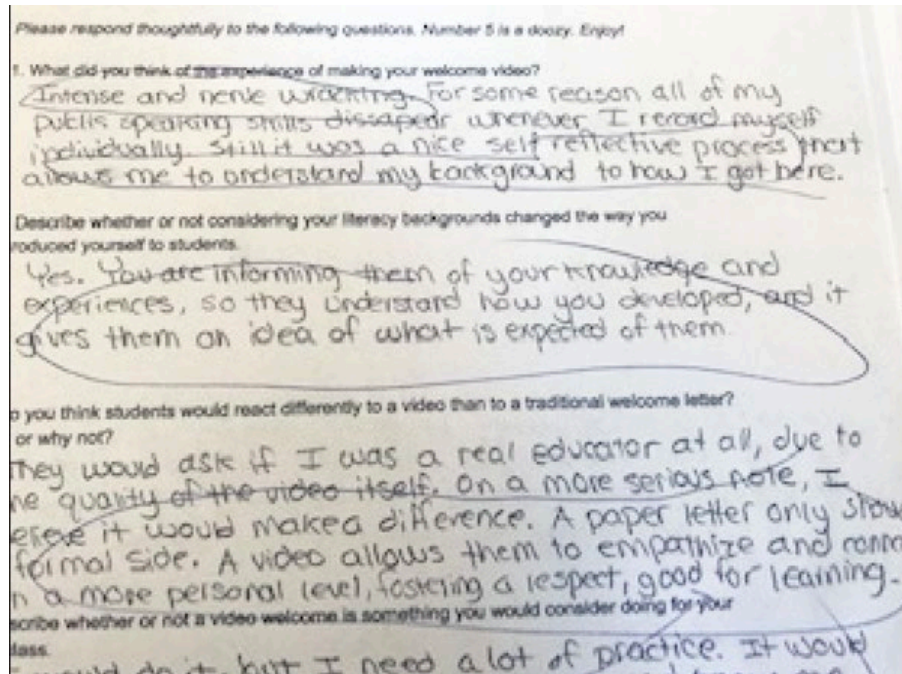 Please respond thoughtfully to the following questions. Number 5 is a doozy. Enjoy!
1. What did you think of the experience of making your welcome video?
Intense and nerve wracking. For some reason all of my
public speaking skills dissapear whenever I record myself
individually. Still it was a nice self reflective process that
allows me to understand my background to how I got here.
Describe whether or not considering your literacy backgrounds changed the way you
roduced yourself to students.
Yes. You are informing them of your knowledge and
experiences, so they understand how you developed, and it
gives them an idea of what is expected of them.
o you think students would react differently to a video than to a traditional welcome letter?
or why not?
They would ask if I was a real educator at all, due to
he quality of the video itself. On a more serious note, I
it would make a difference. A paper letter only show
formal side. A video allows them to empathize and conn
n a more personal level, fostering a respect, good for learning.
scribe whether or not a video welcome is something you would consider doing for your
lass.
would do it, but I need a lot of practice. It would